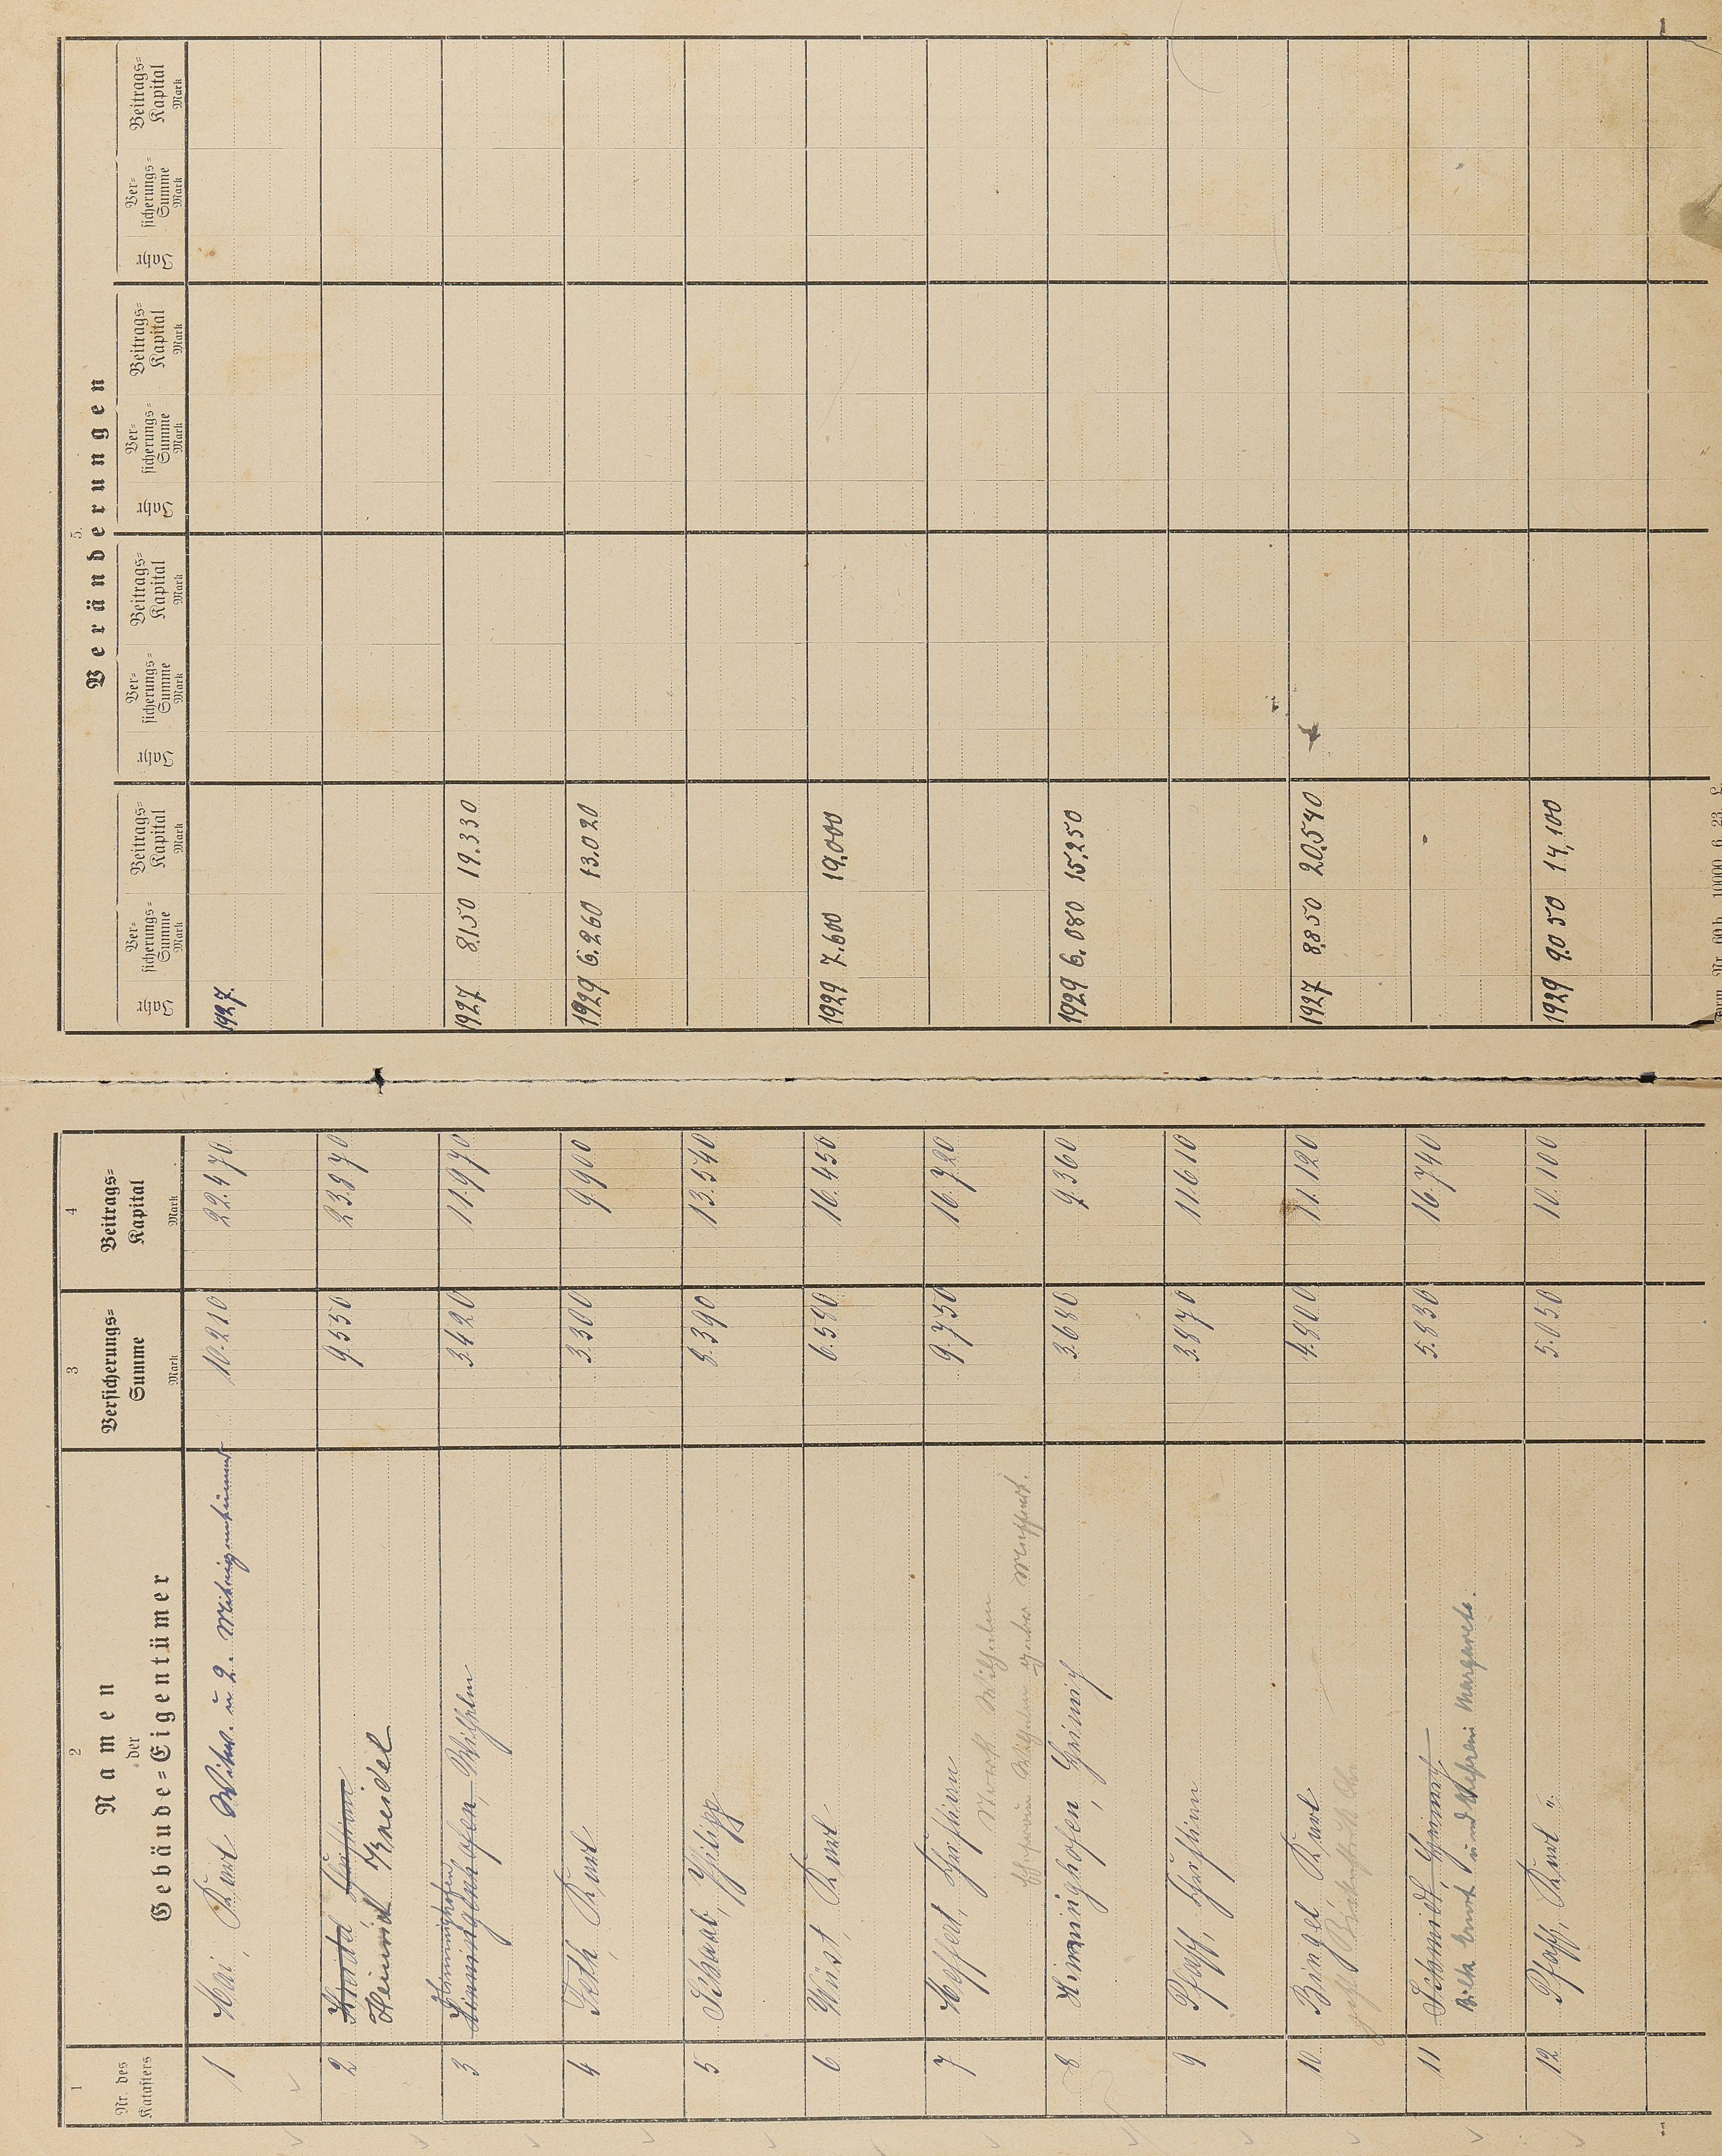 1
2
3
4
Nr. des
Katasters
Namen
der
Gebäude=Eigentümer
Versicherungs=
Summe
Mark
Beitrags=
Kapital
Mark
5.
Veränderungen
Jahr
Ver=
sicherungs=
Summe
Mark
Beitrags=
Kapital
Mark
Jahr
Ver=
sicherungs=
Summe
Mark
Beitrags=
Kapital
Mark
Jahr
Ver=
sicherungs=
Summe
Mark
Beitrags=
Kapital
Mark
Jahr
Ver=
sicherungs=
Summe
Mark
Beitrags=
Kapital
Mark
1
1 Mai, Karl Witwe. u 2. Miteigentümer 10.210 22.470 1927.
2 Kneidel Christian 9.550 23.870
Heinrich Kneidel
Himmighofen
3 Wilhelm 3.420 11.970 1927 8.150 19.330
4 Karl 3.300 9.900 1929 6.260 13.020
5 Schaab, Philipp 8.390 13.540
6 Wüst, Karl 6.580 16.450 1929 7.600 19.000
7 Heffert, Christian 9.750 16.720
Wilhelm
8 Himmighofen, Heinrich 3.680 9.360 1929 6.080 15.250
9 Pfaff, Christian 3.870 11.610
10 Bingel, Karl 4.800 11.120 1927 8.850 20.540
11 Schmidt, Heinrich 5.830 16.740
und Ehefrau Margarete.
12 Pfaff, Karl 5.050 10.100 1929 9.050 14.100
Form. Nr. 60 b. 10000. 6. 23.